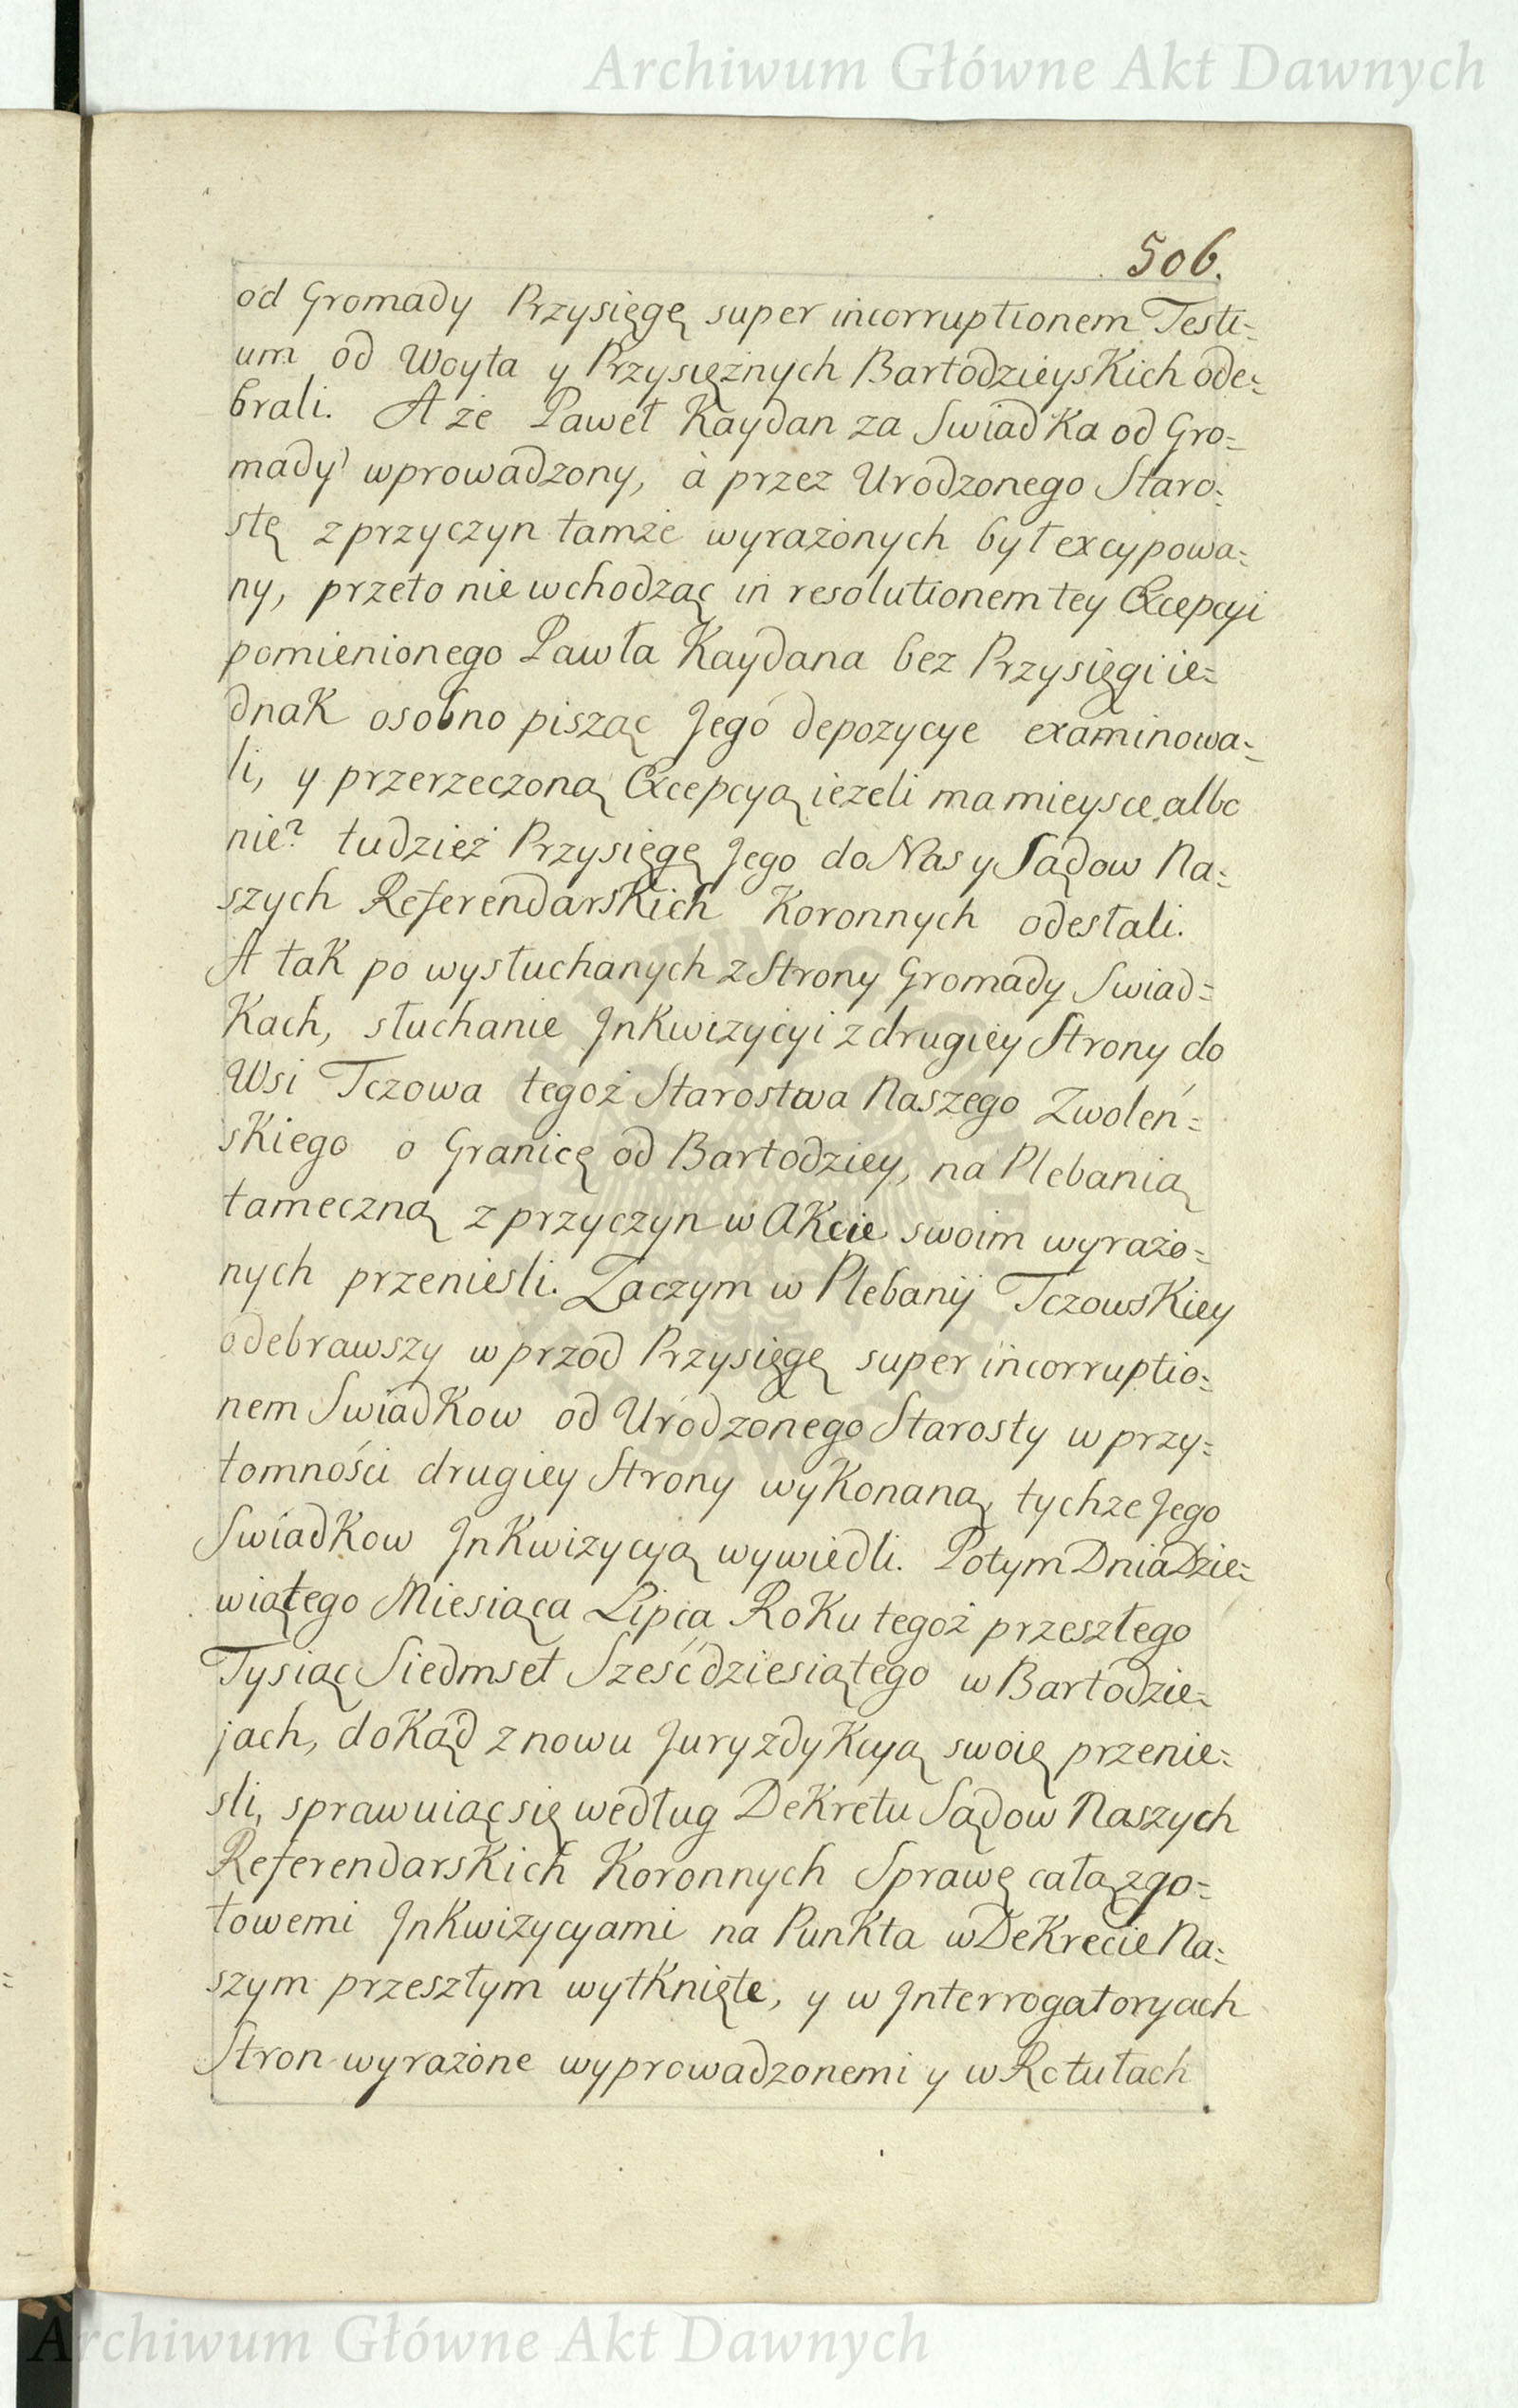 Archiwum Główne Akt Dawnych
506.
od Gromady Przysięgę super incorruptionem Testi=
um od Woyta y Przysiężnych Bartodzieyskich ode=
brali. A że Paweł Kaydan za Swiadka od Gro=
mady wprowadzony, à przez Urodzonego Staro=
stę z przyczyn tamże wyrażonych był excypowa=
ny, przeto nie wchodząc in resolutionem tey Excepcyi
pomienionego Pawła Kaydana bez Przysięgi ie=
dnak osobno pisząc Jego depozycye examinowa=
li, y przerzeczoną Excepcyą ieżeli ma mieysce albo
nie? tudzież Przysięgę Jego do Nas y Sądow Na=
szych Referendarskich Koronnych odesłali.
A tak po wysłuchanych z Strony Gromady Swiad=
kach, słuchanie Jnkwizycyi z drugiey Strony do
Wsi Tczowa tegoż Starostwa Naszego Zwoleń=
skiego o Granicę od Bartodziey, na Plebanią
tameczną z przyczyn w Akcie swoim wyrażo=
nych przenieśli. Zaczym w Plebanij Tczowskiey
odebrawszy w przód Przysięgę super incorruptio=
nem Swiadkow od Urodzonego Starosty w przy=
tomności drugiey Strony wykonaną, tychże Jego
Swiadkow Jnkwizycyą wywiedli. Potym Dnia Dzie=
wiątego Miesiąca Lipca Roku tegoż przeszłego
Tysiąc Siedmset Sześćdziesiątego w Bartodzie=
jach, dokąd znowu Juryzdykcyą swoię przenie=
śli, sprawuiąc się według Dekretu Sądow Naszych
Referendarskich Koronnych Sprawę całą z go=
towemi Jnkwizycyami na Punkta w Dekrecie Na=
szym przeszłym wytknięte, y w Jnterrogatoryach
Stron wyrażone wyprowadzonemi y w Rotułach
Archiwum Główne Akt Dawnych